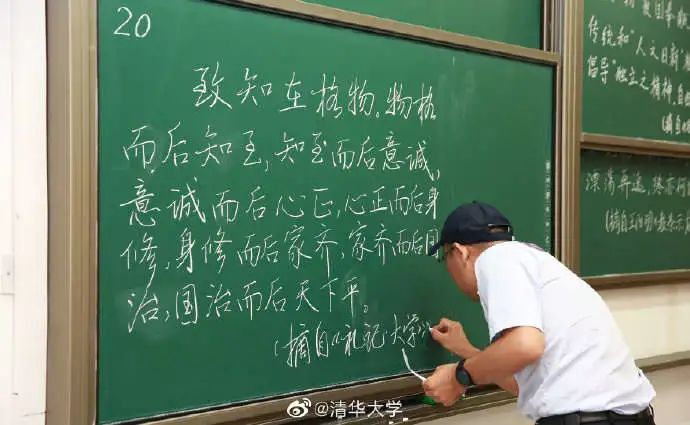 20
致知在格物。物格
而后知至,知至而后意诚,
意诚而后心正,心正而后身
修,身修而后家齐,家齐而后国
治,国治而后天下平。
(摘自《礼记·大学》
传统和"人文日新"
倡导"独立之精神,自
(摘自
(摘自
@清华大学